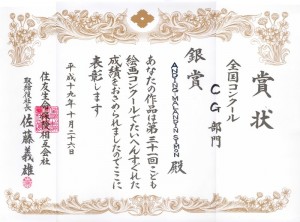 賞状
全国コンクール
CG部門
銀賞
殿
あなたの作品は第三十一回こども
絵画コンクールでたいへんすぐれた
成績をおさめられましたのでここに
表彰します
平成十九年十月二十六日
住友生命保険相互会社
取締役社長 佐藤義雄